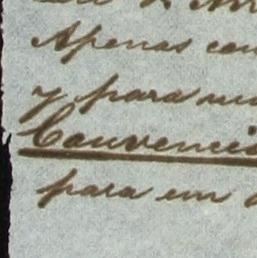 Apenas con
y para un
Convenci
para un